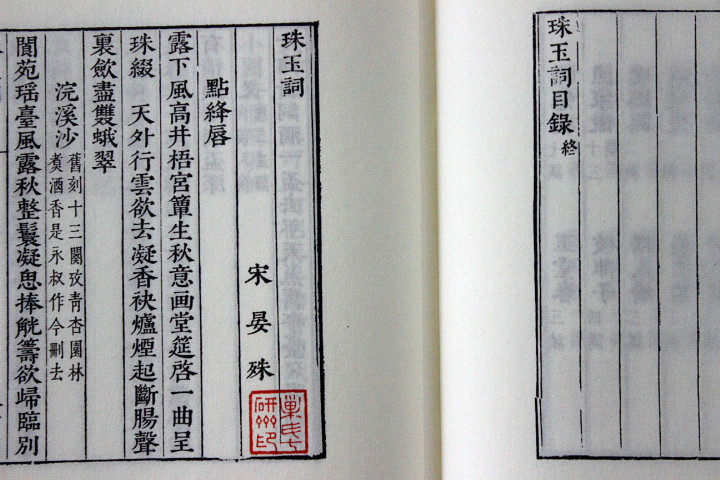 珠玉詞目錄 終
珠玉詞
宋 晏 殊
點絳唇
露下風高井梧宮簟生秋意画堂筵啓一曲呈
珠綴 天外行雲欲去凝香袂爐煙起斷腸聲
裏歛盡雙蛾翠
浣溪沙
舊刻十三闋攷青杏園林
煑酒香是永叔作今刪去
閬苑瑶臺風露秋整鬟凝思捧觥籌欲歸臨別